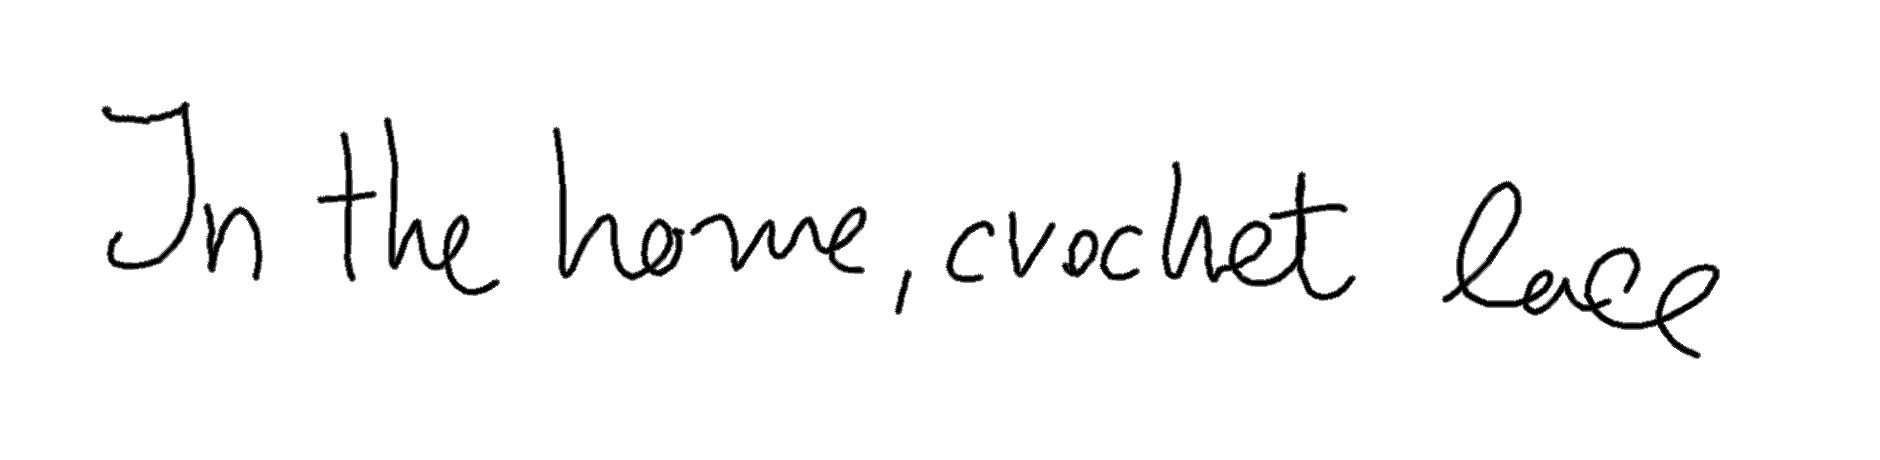 In the home, crochet lace